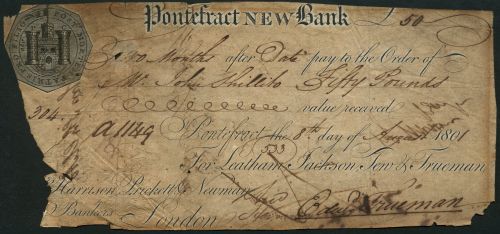 Pontefract NEW Bank £ 50
Two Months after Date pay to the Order of
Mr. John Shillito Fifty Pounds
value received
304
A1149 Pontefract the 8th day of August 1801
For Leatham Jackson Tew & Trueman
Harrison Prickett & Newman
Bankers London
Edwd Trueman